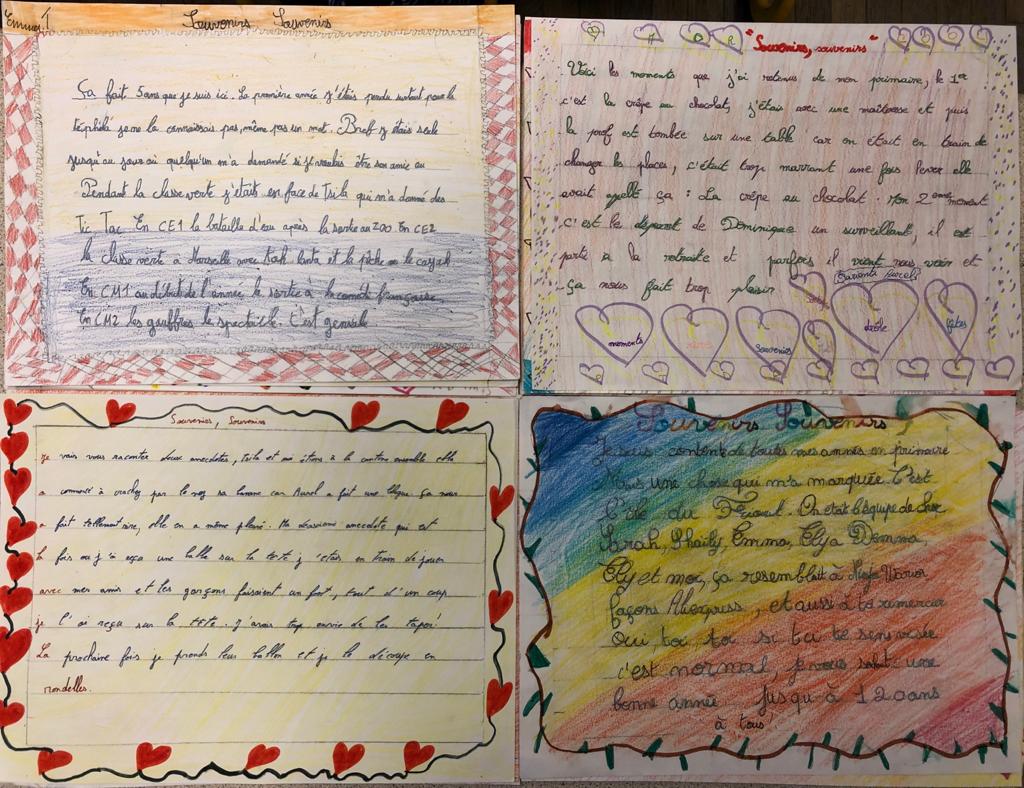 Emma T
Souvenirs, Souvenirs
Ça fait 5 ans que je suis ici. La première année j'étais perdu surtout pour la
téphila je ne la connaissais pas, même pas un mot. Bref j'étais seule
jusqu'au jour où quelqu'un m'a demandé si je voulais être son amie au
Pendant la classe verte j'étais en face de Tsila qui m'a donné des
Tic Tac. En CE1 la bataille d'eau après la sortie au ZOO En CE2
la classe verte à Marseille avec Koh lanta et la pêche
En CM1 au début de l'année la sortie à la comédie française
En CM2 les gauffres le spectacle. C'est géniale
"Souvenirs, souvenirs"
Voici les moments que j'ai retenus de mon primaire, le 1er
c'est la crêpe au chocolat, j'étais avec une maîtresse et puis
la prof est tombée sur une table car on était en train de
changer les places, c'était trop marrant une fois lever elle
avait ça : La crêpe au chocolat. Mon 2 moment
c'est le départ de Dominique un surveillant, il est
parti a la retraite et parfois il vient nous voir et
ça nous fait trop plaisir
moments
souvenirs
drôle
Souvenirs, Souvenirs
je vais vous raconter deux anecdotes, Tsila et moi étions à la cantine ensemble elle
a commencé à cracher par le nez sa banane car Aurel a fait une blague ça nous
a fait tellement rire, elle en a même pleuré. Ma deuxième anecdote qui est
la fois ou j'ai reçu une balle sur la tête j'étais en train de jouer
avec mes amis et les garçons faisaient un foot, tout d'un coup
je l'ai reçu sur la tête. j'avais trop envie de les taper!
La prochaine fois je prends leur ballon et je le découpe en
rondelles.
Souvenirs Souvenirs
Je suis contente de toutes mes années en primaire
Mais une chose qui m'a marquée C'est
l'île du Frioul. On était l'équipe de choc
Sarah, Shaily, Emma, Elya Demma,
Ely et moi, ça ressemblait à Ninja Warior
façons Aliexpress, et aussi à te remercier
Oui, toi, toi si tu te sens visée
c'est normal, je vous une
bonne année jusqu'à 120 ans
à tous!